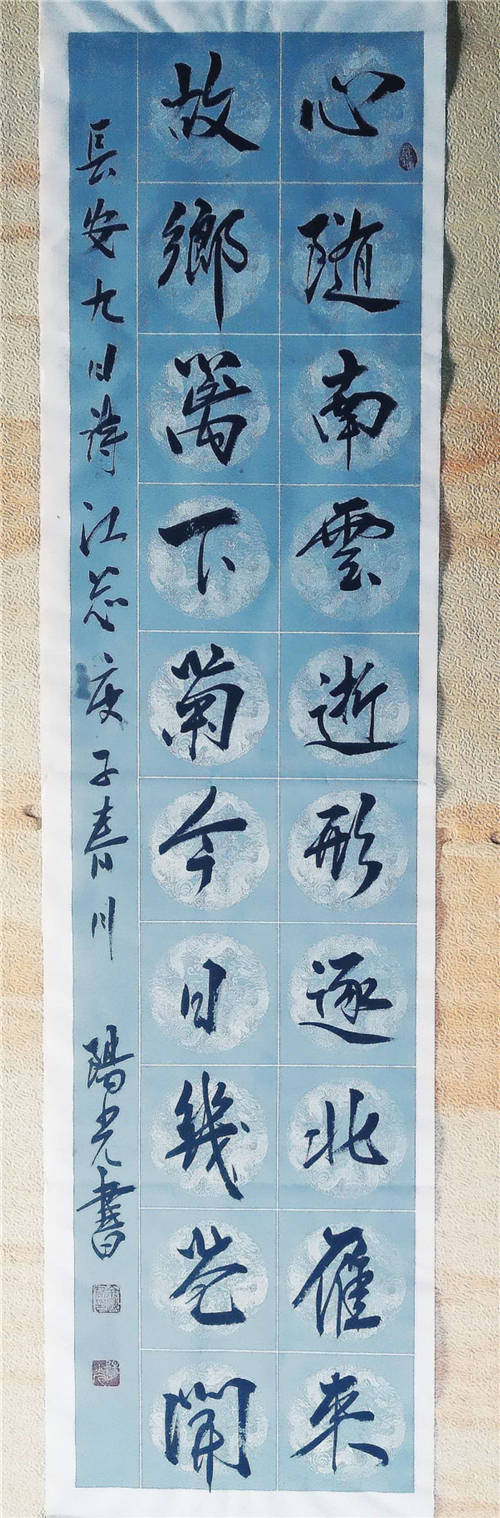 心随南雲逝形逐北雁來
故鄉篱下菊今日幾花開
長安九日詩江总庚子春月 陽光書